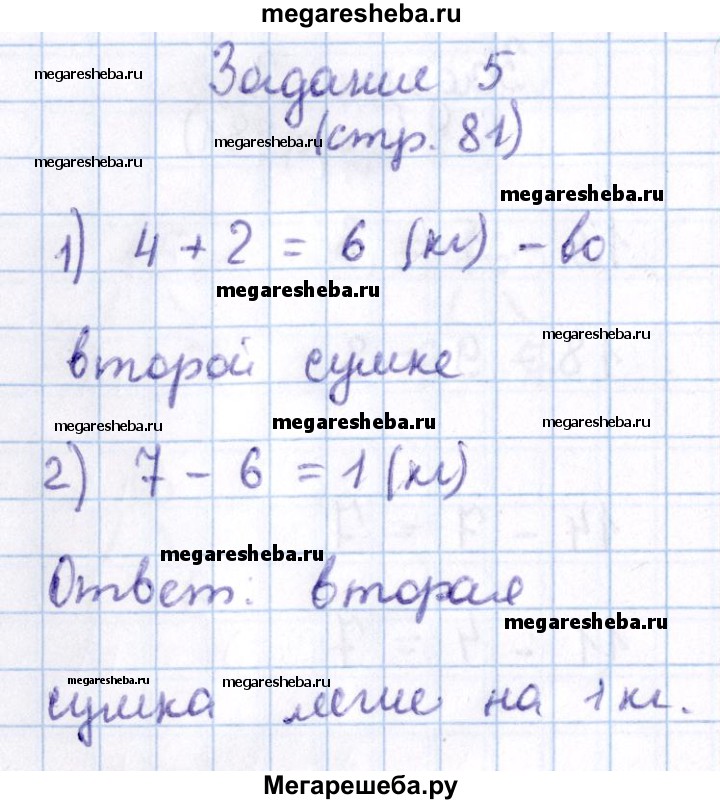 megaresheba.ru
Задание 5
megaresheba.ru
(стр. 81)
megaresheba.ru
megaresheba.ru
megaresheba.ru
1) 4 + 2 = 6 (кг) - во
megaresheba.ru
megaresheba.ru
второй сумке
megaresheba.ru
megaresheba.ru
megaresheba.ru
2) 7 - 6 = 1 (кг)
megaresheba.ru
Ответ: вторая
megaresheba.ru
megaresheba.ru
megaresheba.ru
сумка легче на 1 кг.
Мегарешеба.ру